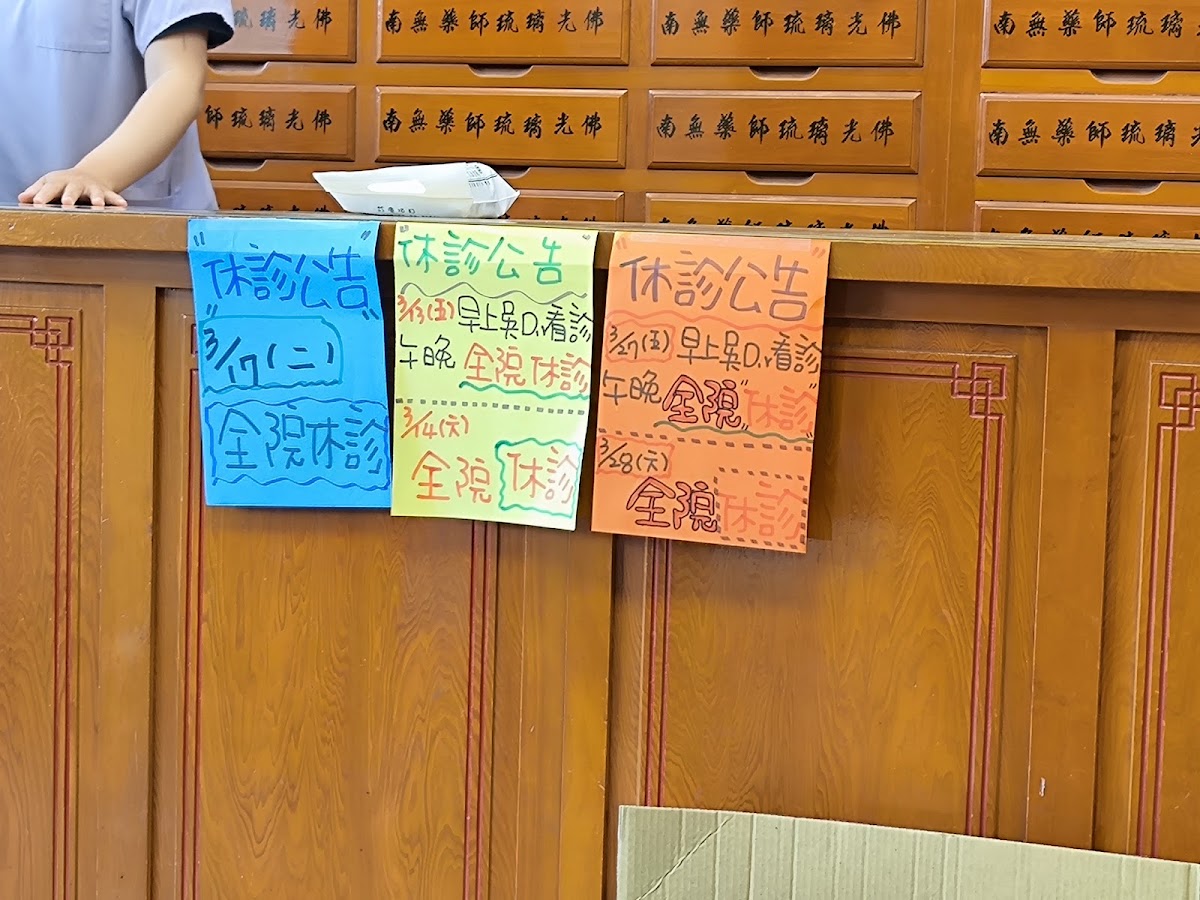 琉璃光佛
南無藥師琉璃光佛
南無藥師琉璃光佛
南無藥師琉璃
師琉璃光佛
南無藥師琉璃光佛
南無藥師琉璃光佛
南無藥師琉璃
"休診公告"
3/17(二)
全院休診
"休診公告
3/13(五)早上吳Dr看診
午晚 全院休診
3/14(六)
全院 休診
"休診公告"
3/27(五)早上吳Dr看診
午晚 全院"休診"
3/28(六)
全院 休診